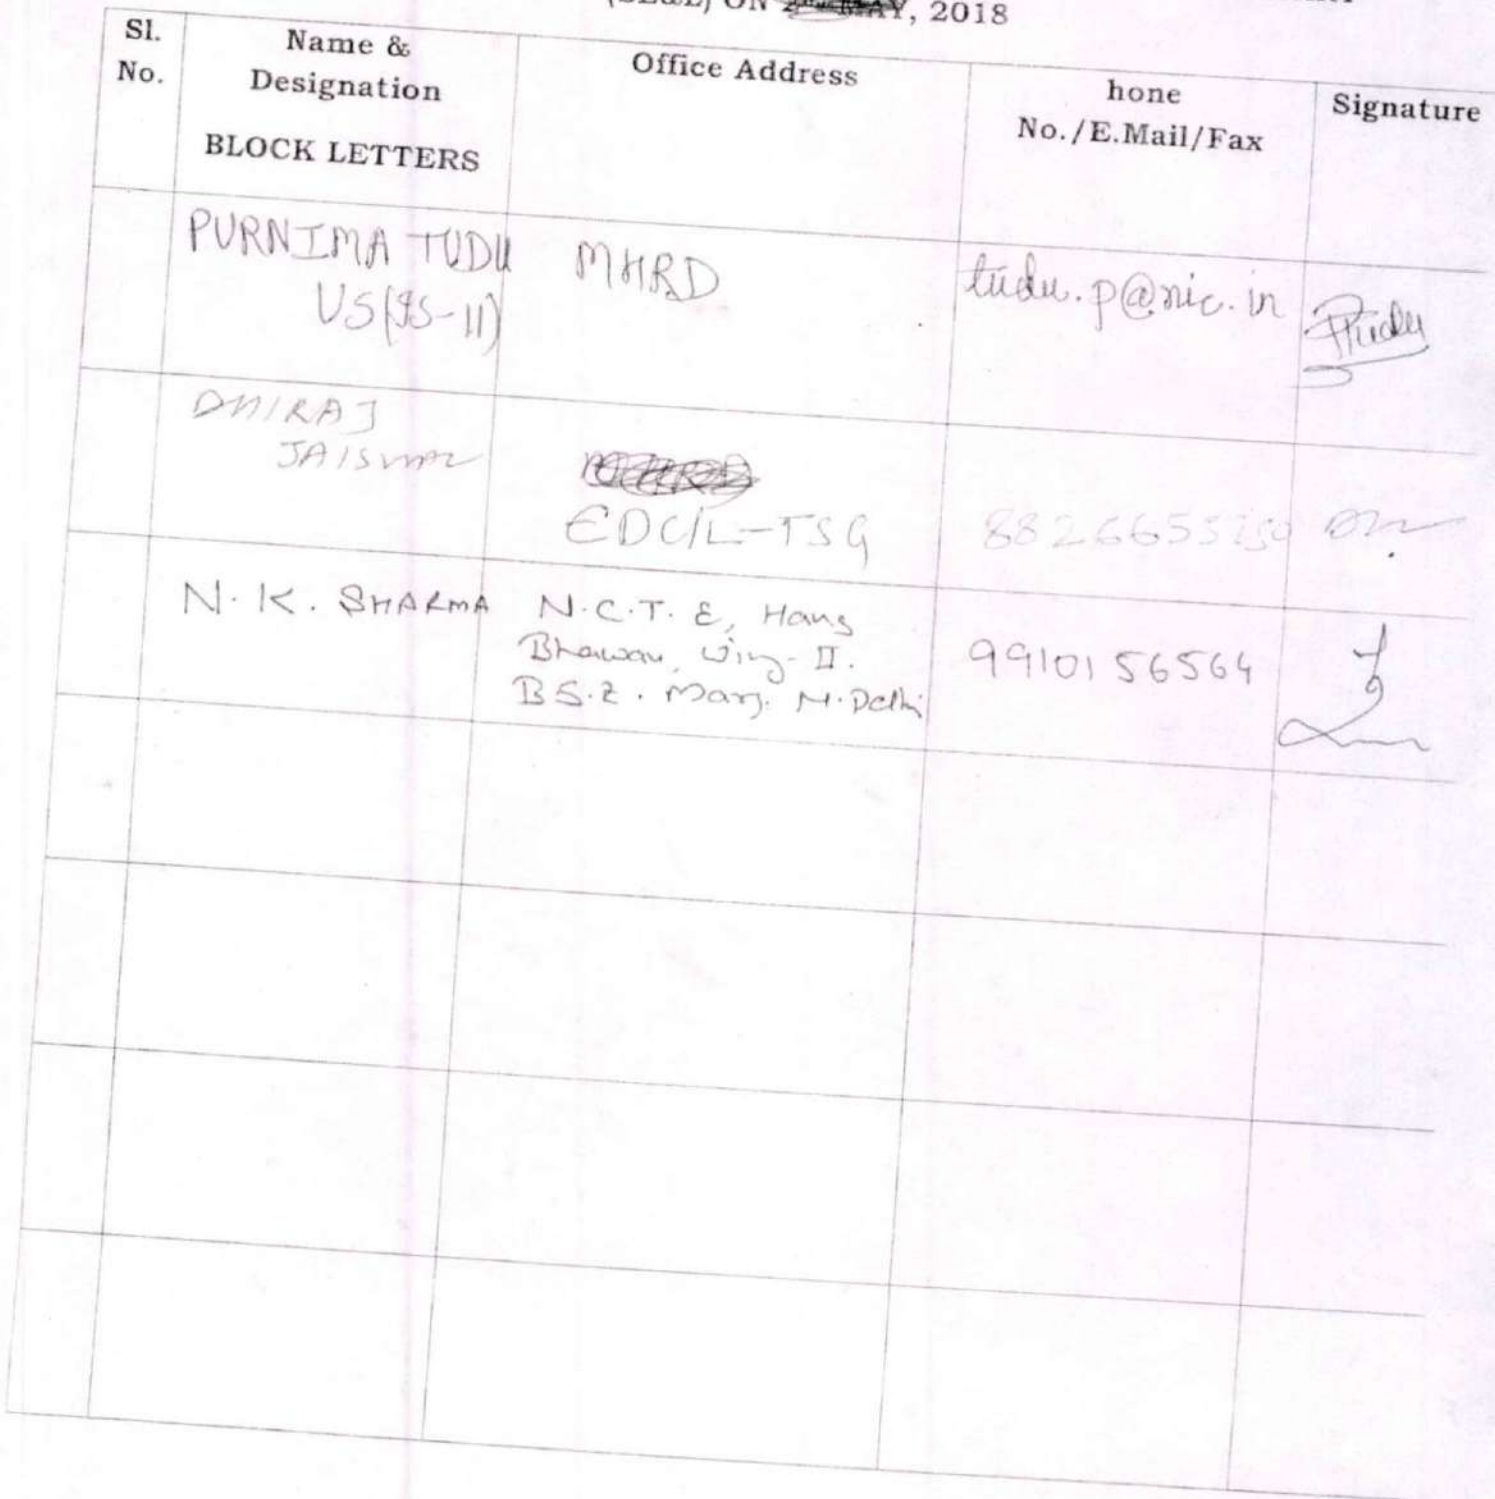 ON MAY, 2018
Sl. No.
Name & Designation
BLOCK LETTERS
Office Address
hone No./E.Mail/Fax
Signature
PURNIMA TUDU
US(IS-11)
MHRD
tudu.p@nic.in
DHIRAJ
JAISWAL
EDCIL-TSG
N.K. SHARMA
N.C.T.E, Hans
Bhawan, Wing-II.
B.S.Z. Marg. N.Delhi
9910156564